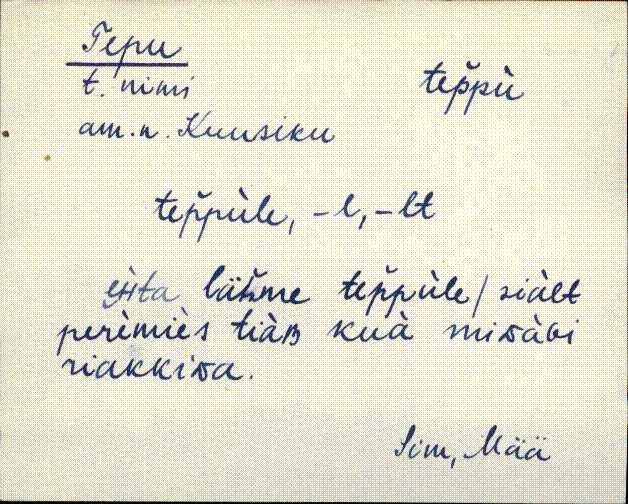 Tepu
t. nimi
am. n. Kuusiku
tep̆pù
tep̆pùle, -l, -lt
lähme tep̆pùle / siàlt
perèmiès tiàʙ kuà
riakkiʙa.
Sim, Mää